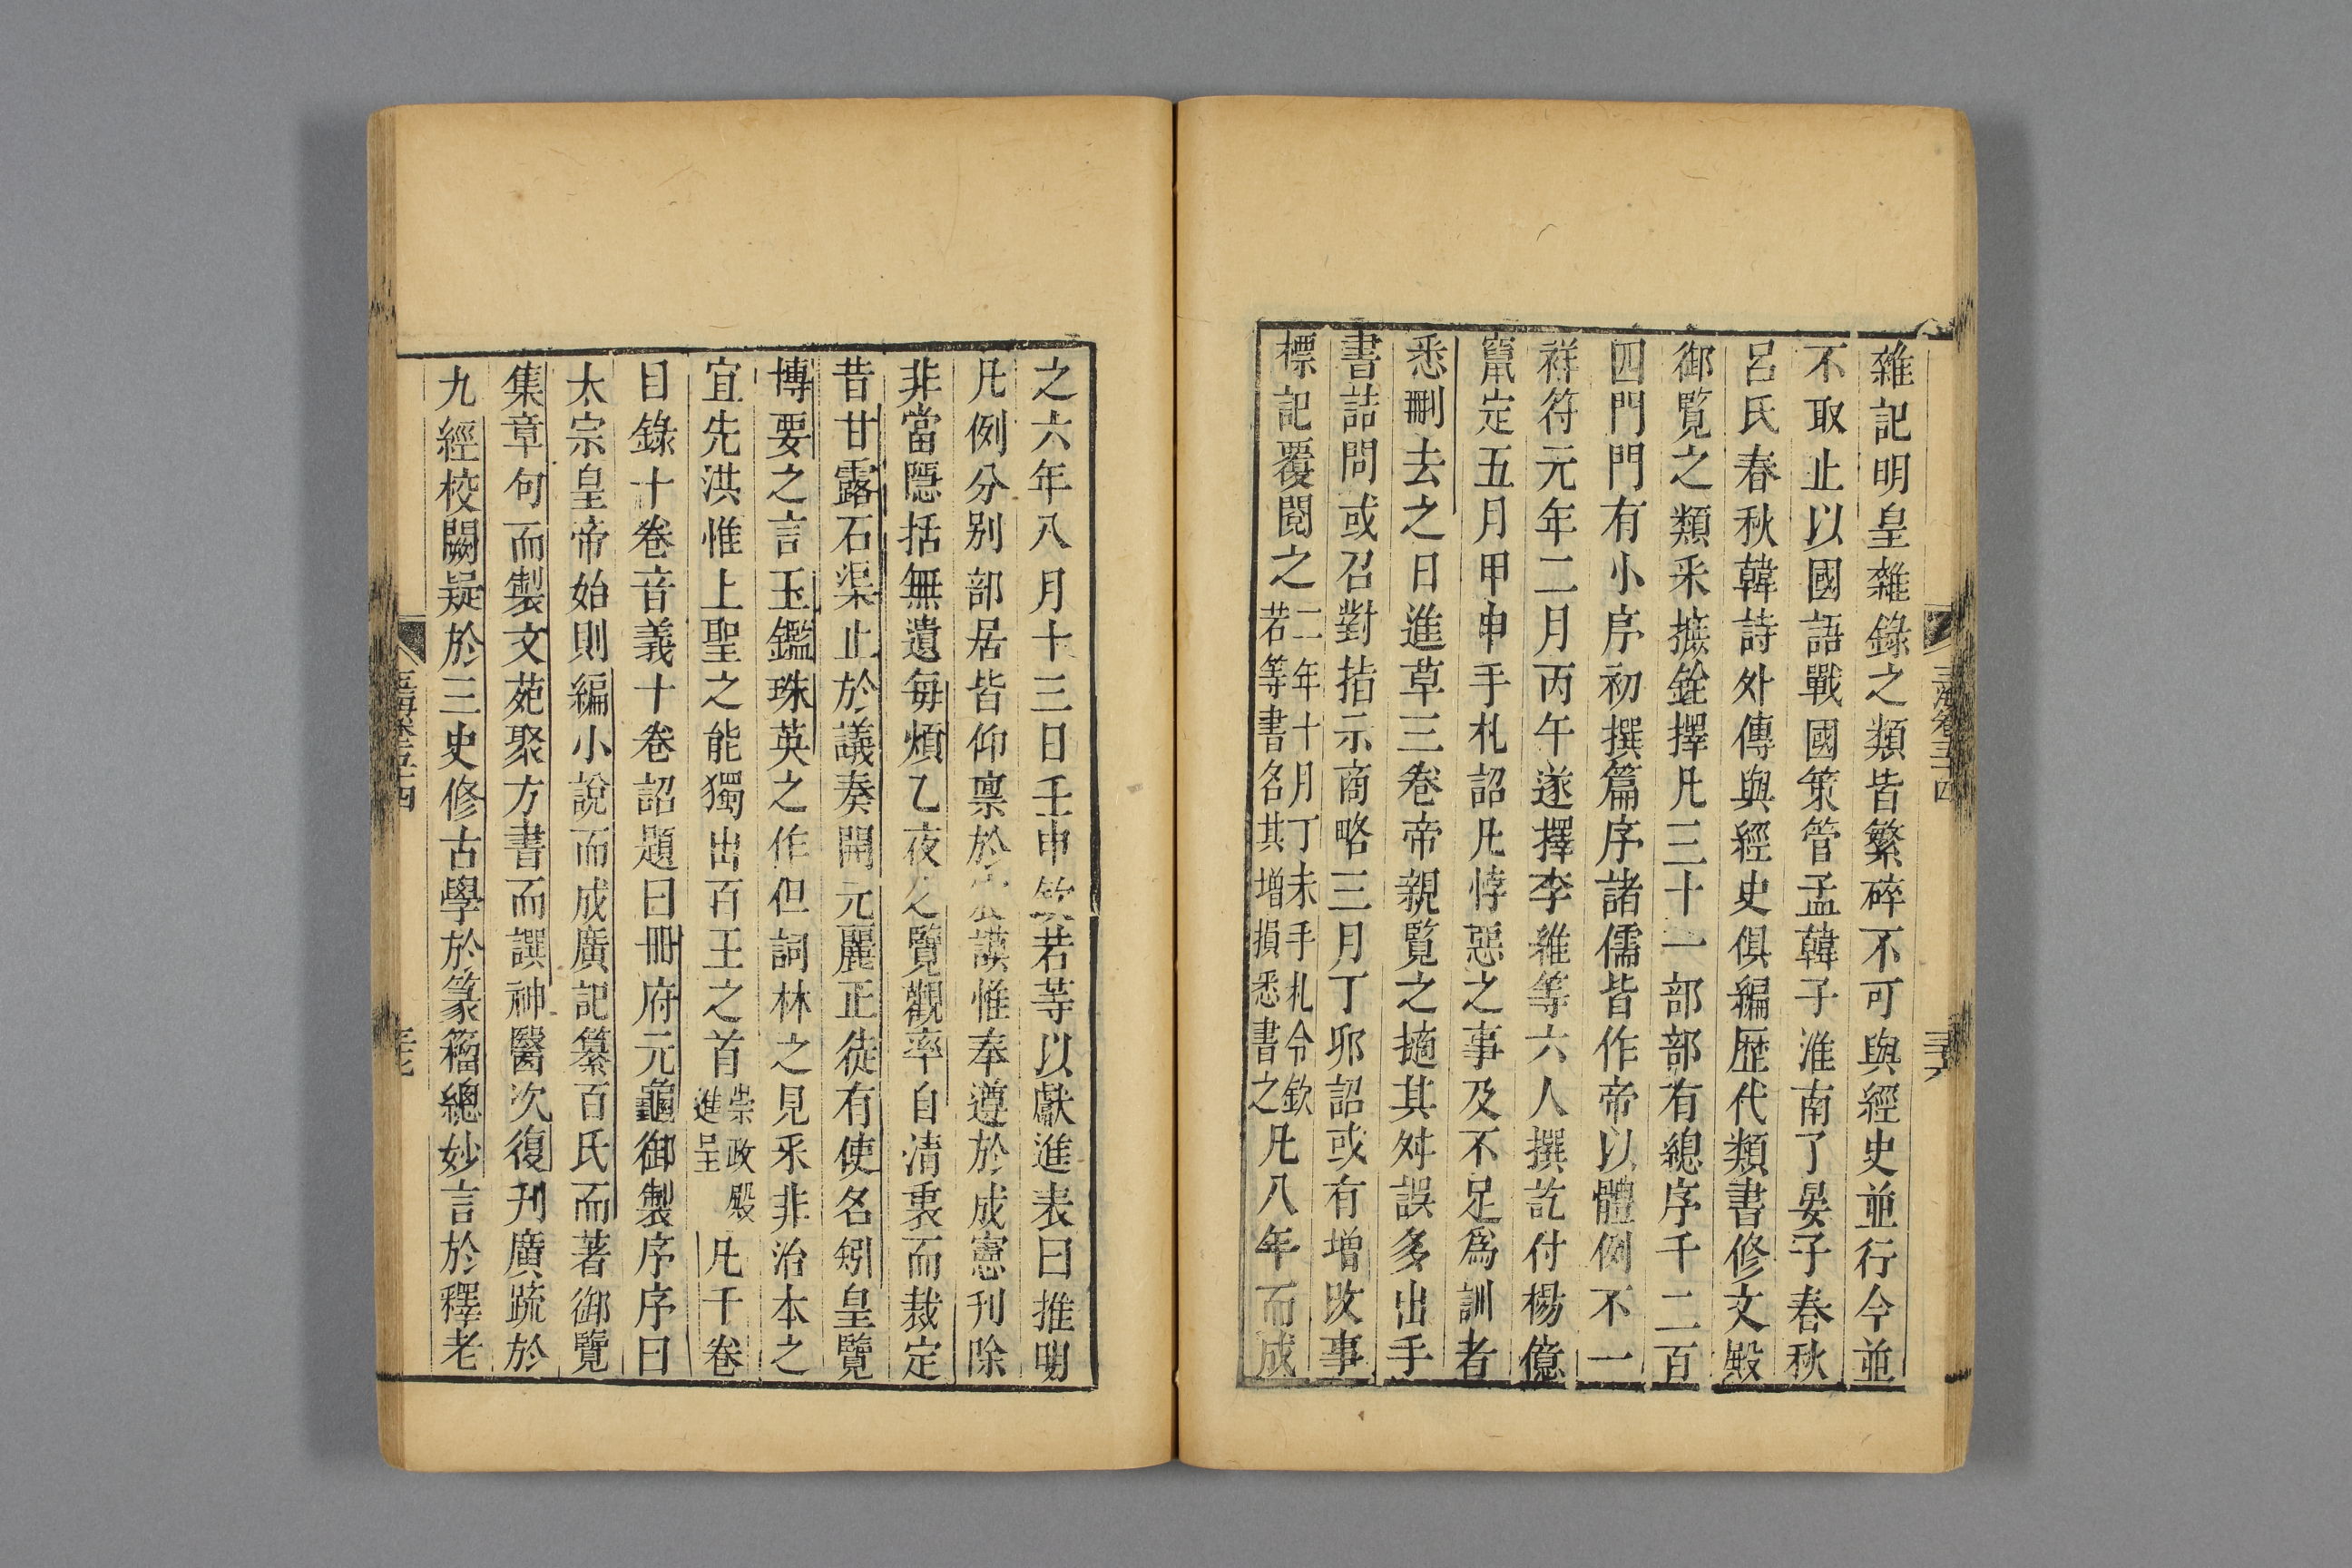 雜記明皇雜錄之類皆繁碎不可與經史並行今並
不取止以國語戰國策管孟韓子淮南了晏子春秋
呂氏春秋韓詩外傳與經史俱編歷代類書修文殿
御覽之類采摭銓擇凡三十一部部有總序千二百
四門門有小序初撰篇序諸儒皆作帝以體例不一
祥符元年二月丙午遂擇李維等六人撰訖付楊億
竄定五月甲申手札詔凡悖惡之事及不足爲訓者
悉刪去之日進草三卷帝親覽之擿其舛誤多出手
書詰問或召對指示商略三月丁卯詔或有增改事
標記覆閱之
二年十月丁未手札令欽
若等書名其增損悉書之
凡八年而成
玉海卷五十四
之六年八月十三日壬申欽若等以獻進表曰推明
凡例分別部居皆仰稟於謨惟奉遵於成憲刊除
非當隱括無遺每煩乙夜之覽觀率自清衷而裁定
昔甘露石渠止於議奏開元麗正徒有使名矧皇覽
博要之言玉鑑珠英之作但詞林之見釆非治本之
宜先洪惟上聖之能獨出百王之首
崇政殿
進呈
凡千卷
目錄十卷音義十卷詔題曰冊府元龜御製序序曰
太宗皇帝始則編小說而成廣記纂百氏而著御覽
集章句而製文苑聚方書而譔神醫次復刊廣疏於
九經校闕疑於三史修古學於篆籀總妙言於釋老